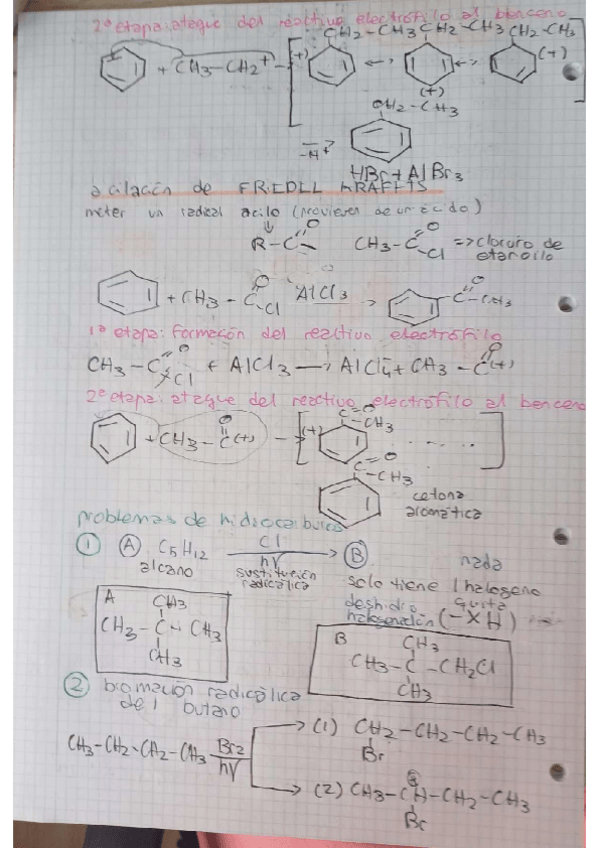 2ª etapa: ataque del reactivo electrófilo al benceno
CH2-CH3 CH2-CH3 CH2-CH3
+ CH3-CH2+ → (+) ↔ ↔ (+)
(+)
CH2-CH3
-H+
HBr + AlBr3
acilación de FRIEDEL KRAFFTS
meter un radical acilo (proviene de un ácido)
O O
R-C- CH3-C => cloruro de
Cl etanoilo
O O
+ CH3-C AlCl3 → C-CH3
Cl
1ª etapa: formación del reactivo electrófilo
O O
CH3-C + AlCl3 → AlCl4 + CH3-C(+)
Cl
2ª etapa: ataque del reactivo electrófilo al benceno
O C=O
+ CH3-C(+) → (+) CH3 .....
C=O
CH3
cetona
aromática
problemas de hidrocarburos
1 A C5H12 Cl B
alcano hν nada
sustitución solo tiene 1 halogeno
radicálica deshidro quita
halogenación (-XH)
A CH3
CH3-C-CH3
CH3
B CH3
CH3-C-CH2Cl
CH3
2 bromación radicálica
del butano
(1) CH2-CH2-CH2-CH3
Br
CH3-CH2-CH2-CH3 Br2
hν
(2) CH3-CH-CH2-CH3
Br